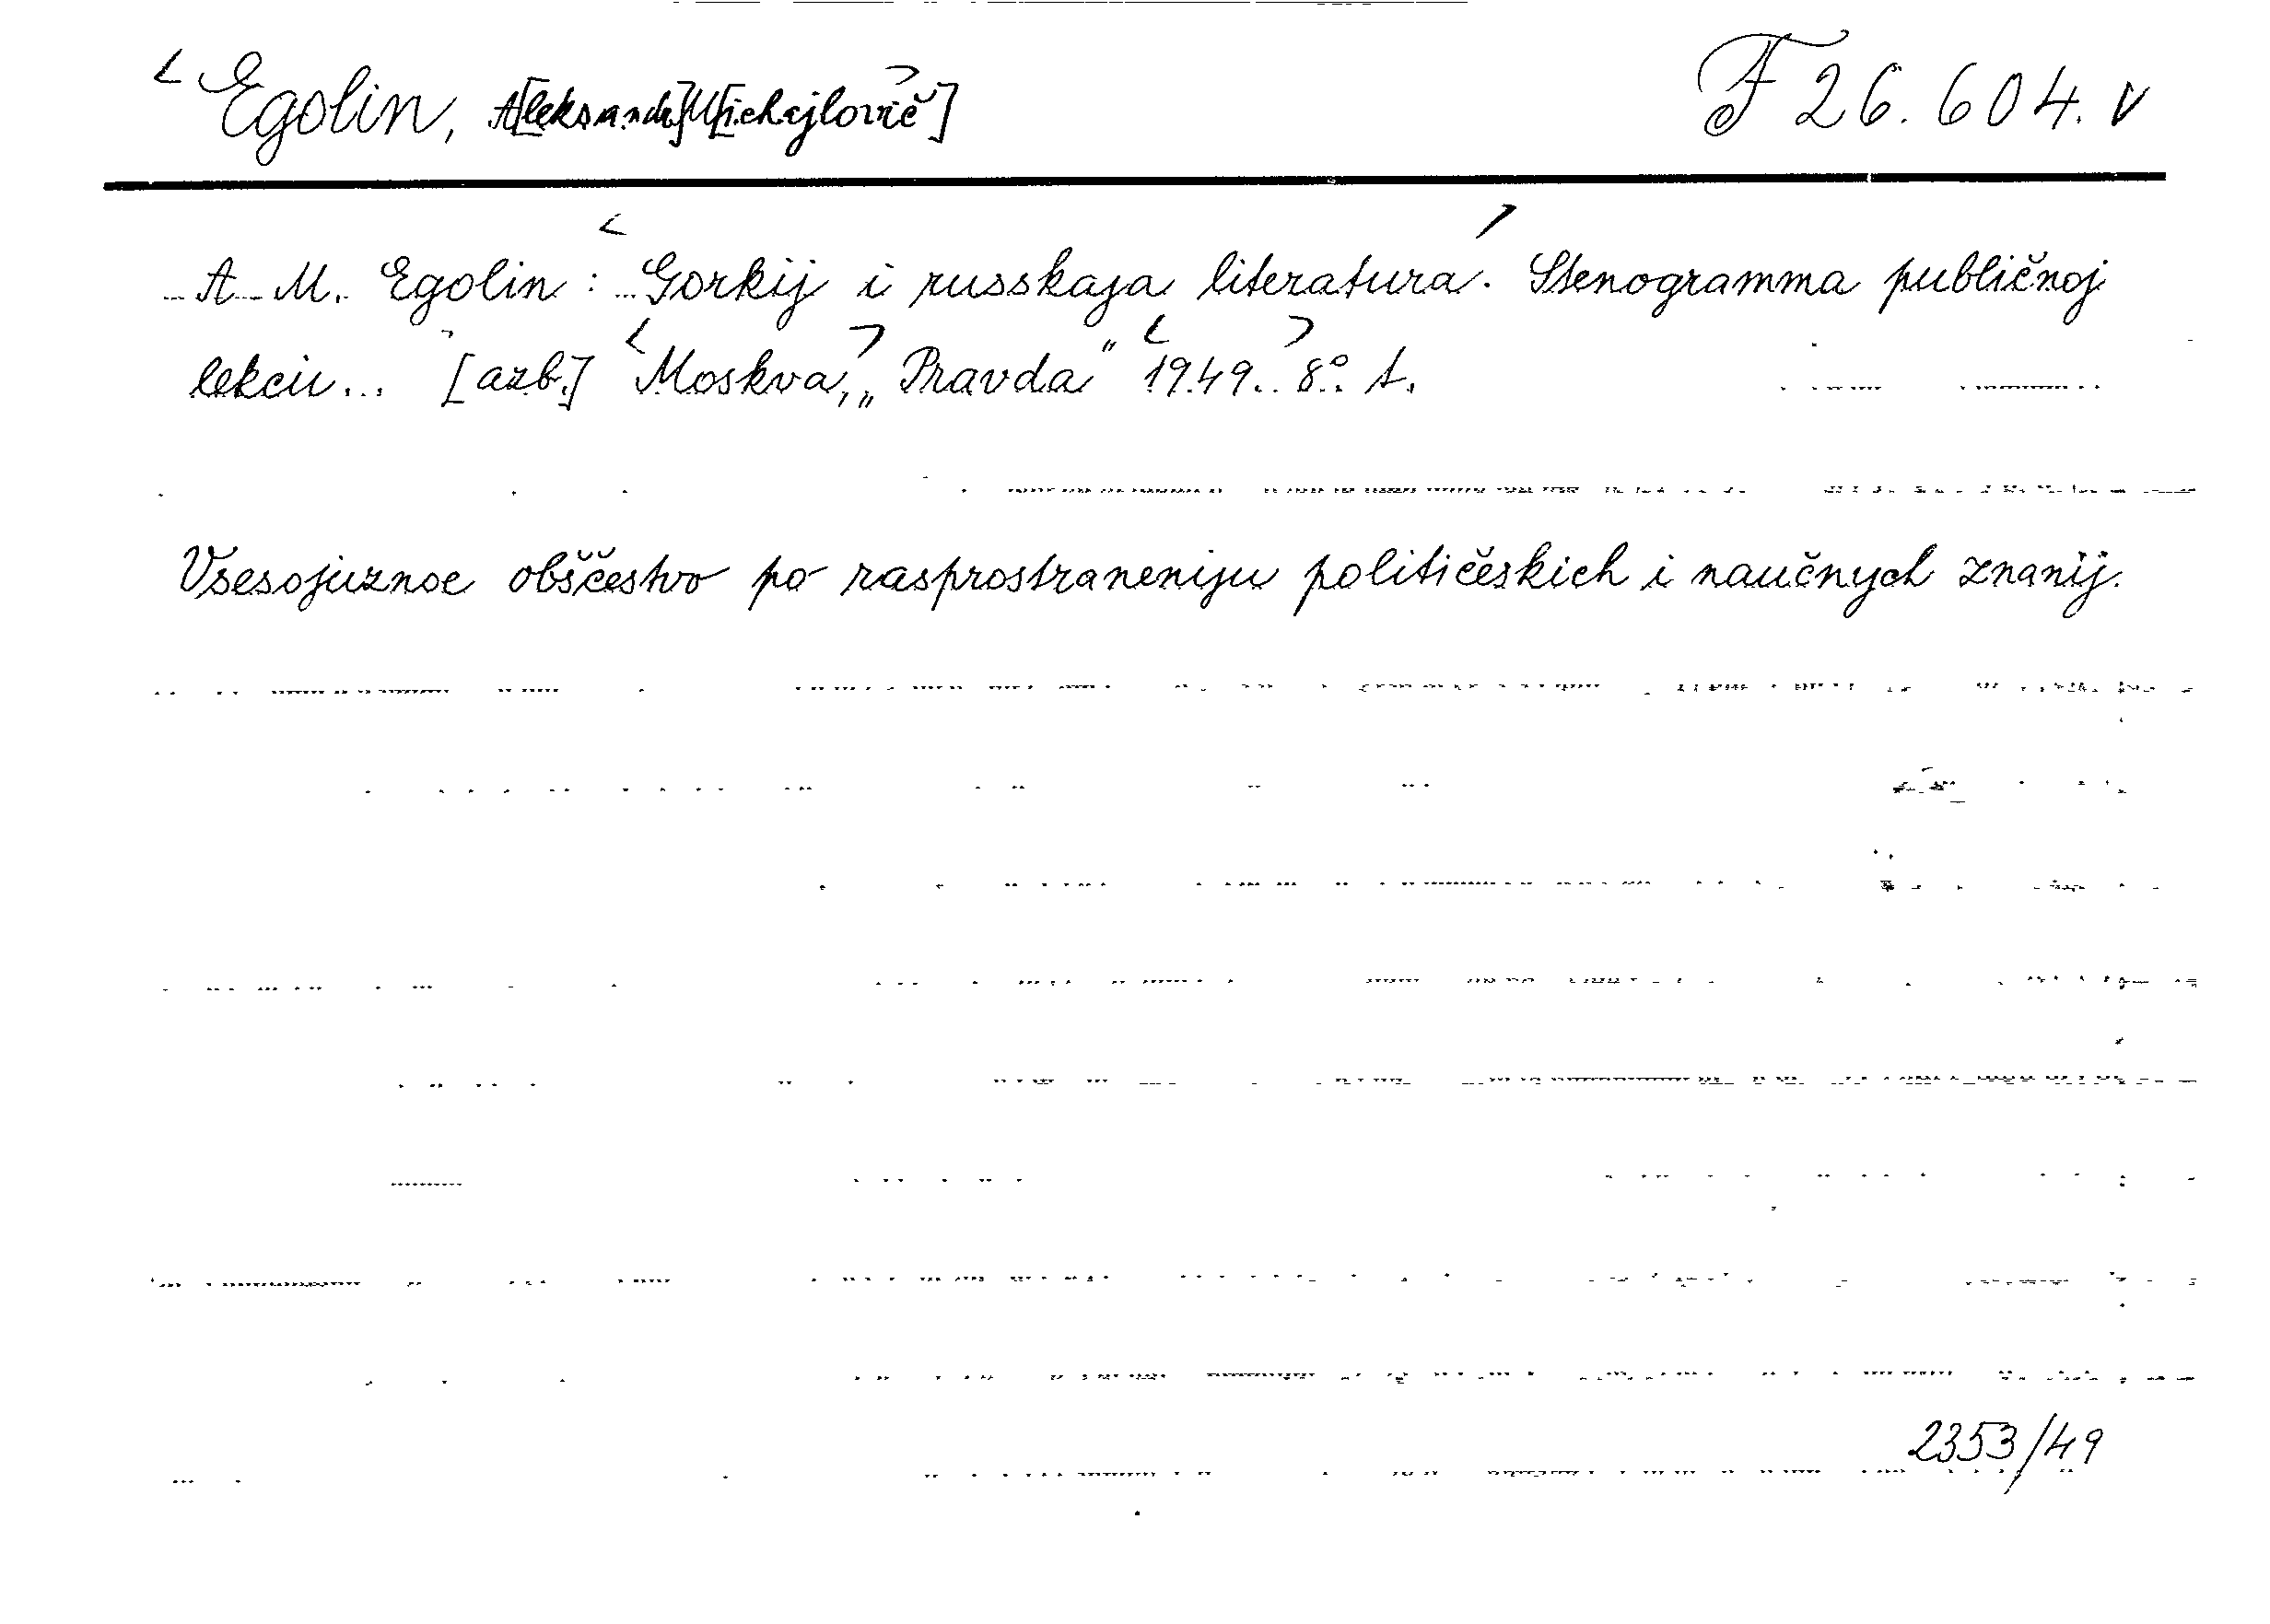 <Egolin, A[leksandr] M[ichajlovič]> F 26.604. v
A. M. Egolin: <Gorkij i russkaja literatura>. Stenogramma publičnoj
lekcii... [azb.] <Moskva>, „Pravda" <1949.> 8° 1.
Vsesojuznoe obščestvo po rasprostraneniju političeskich i naučnych znanij.
2353/49